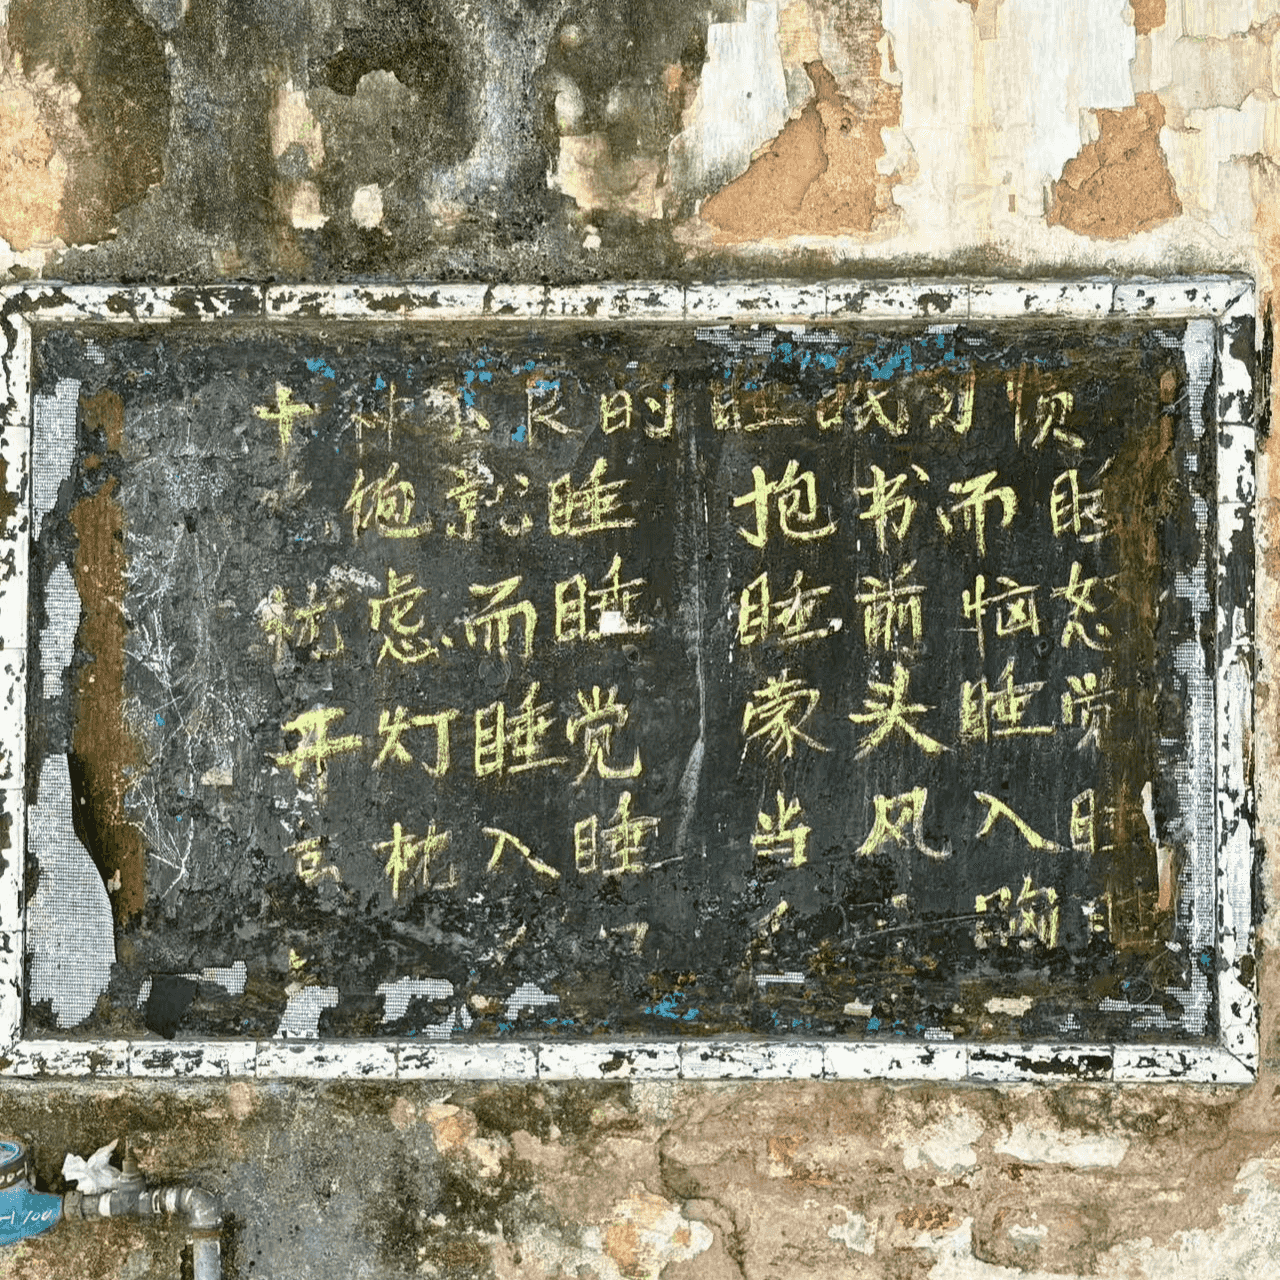 十种不良的睡眠习惯
饱就睡 抱书而眠
忧虑而睡 睡前恼怒
开灯睡觉 蒙头睡觉
高枕入睡 当风入睡